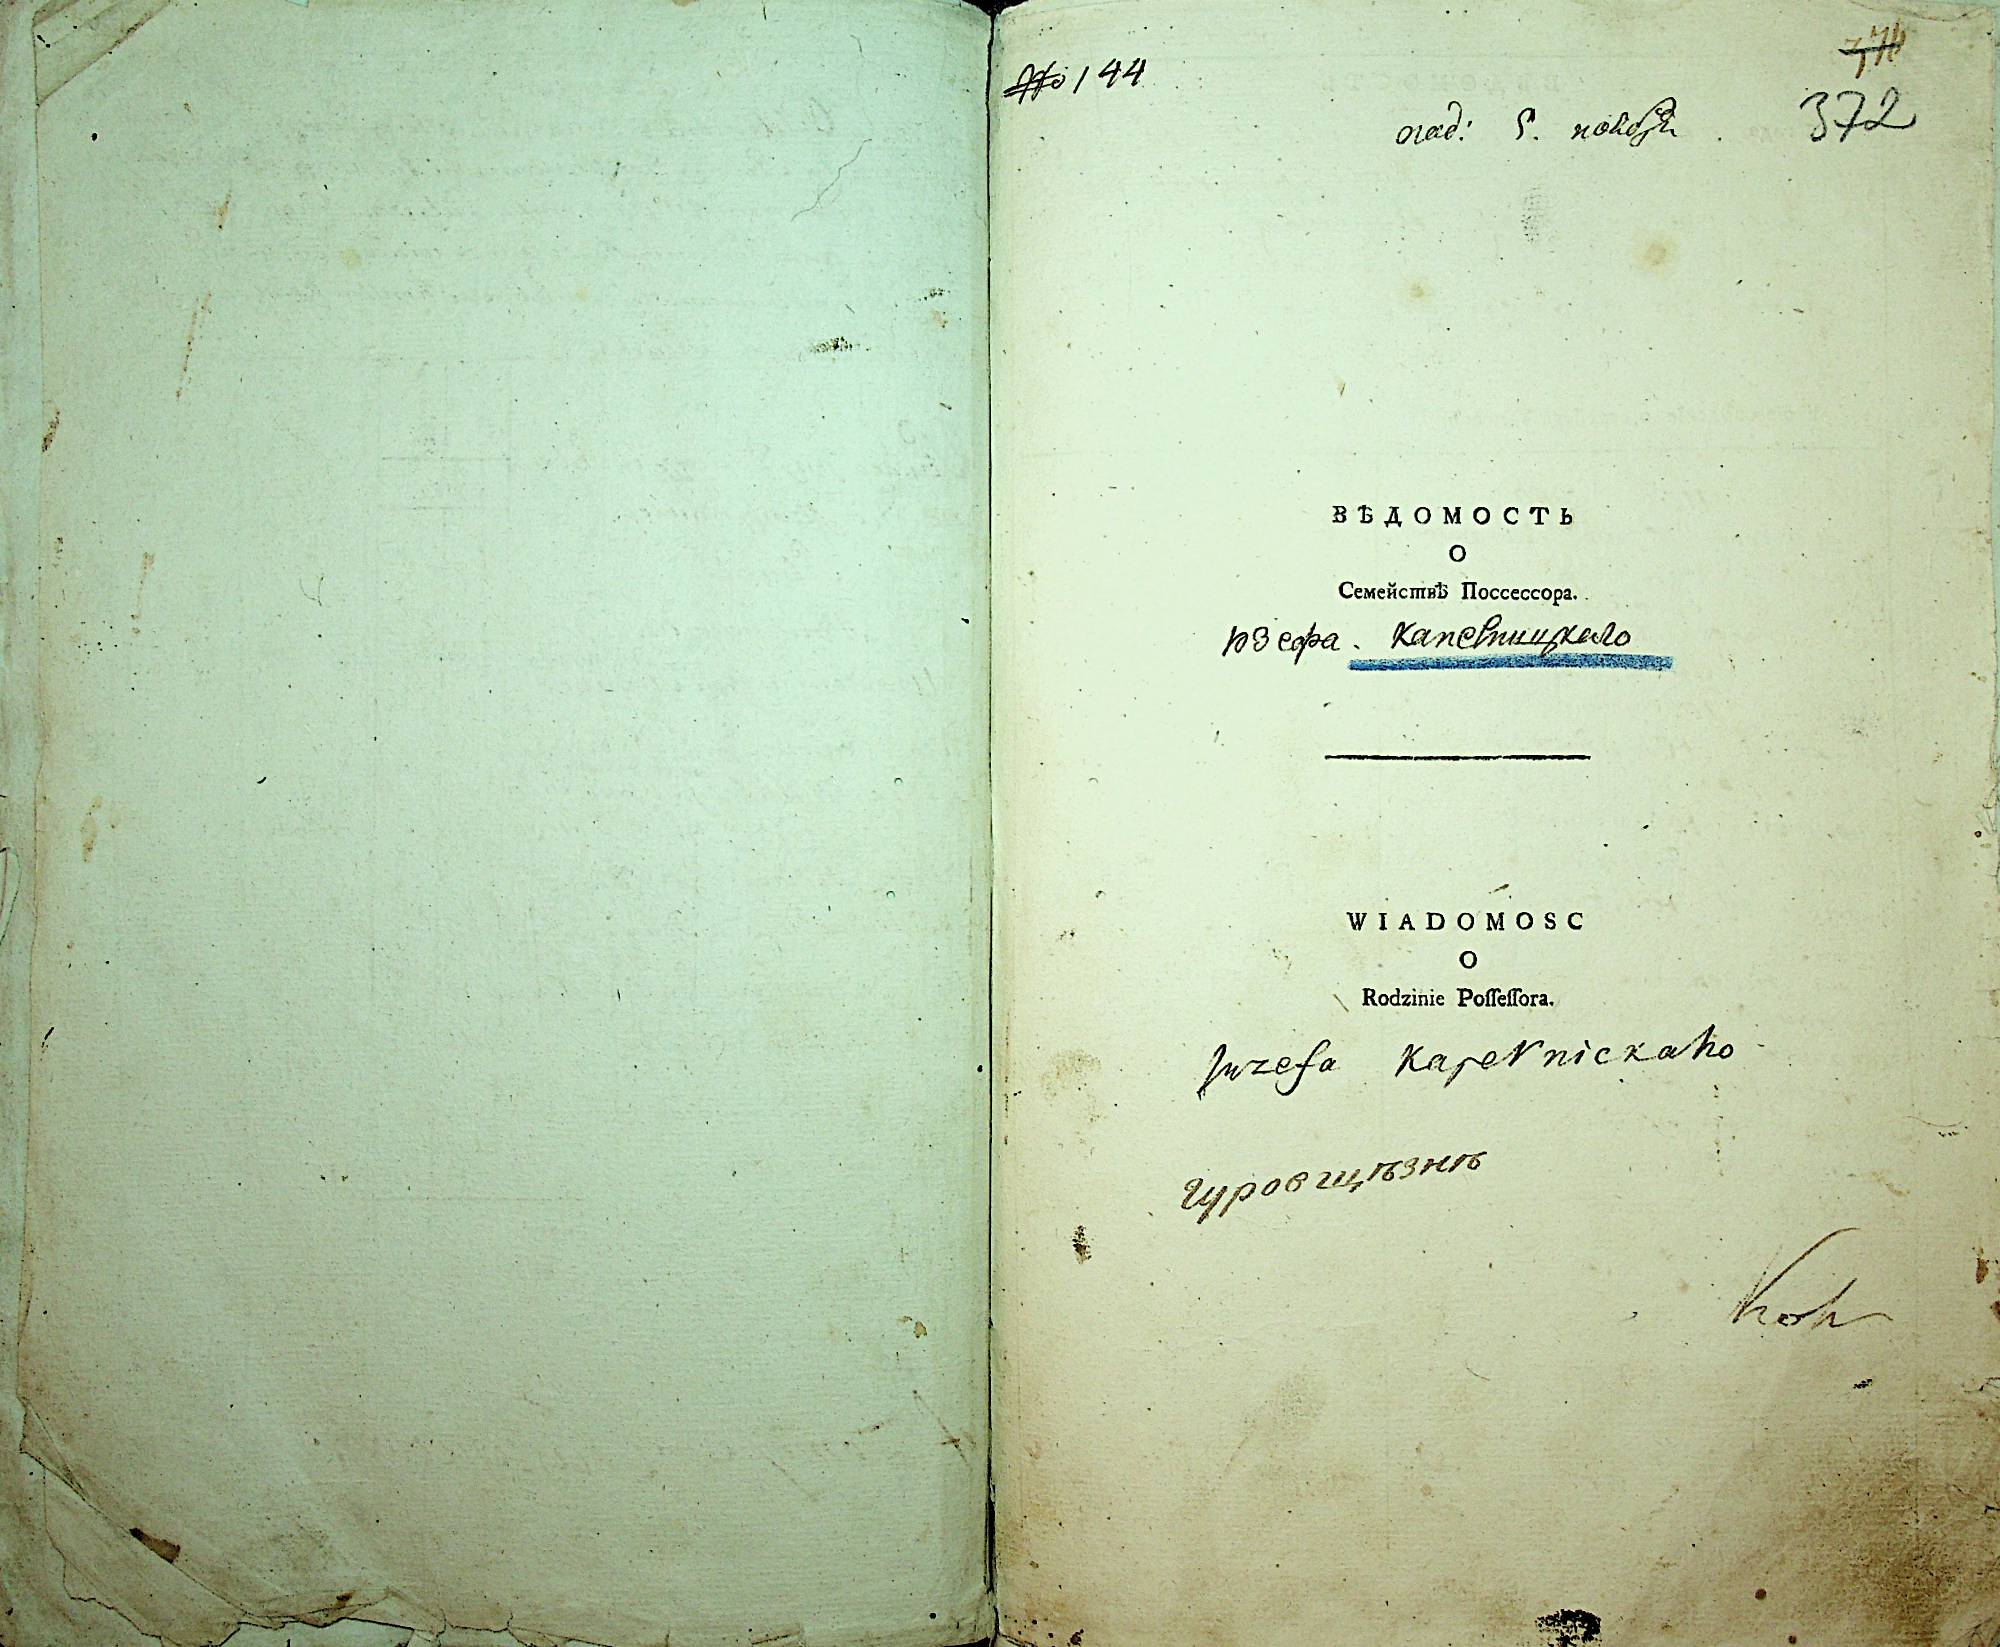 No 144
774
372
под: 5. ноября.
ВѢДОМОСТЬ
О
Семействѣ Поссессора.
Юзефа. Капевницкаго
WIADOMOSC
O
Rodzinie Poſſeſſora.
Juzefa Kapewnickaho
гуровщѣзнѣ